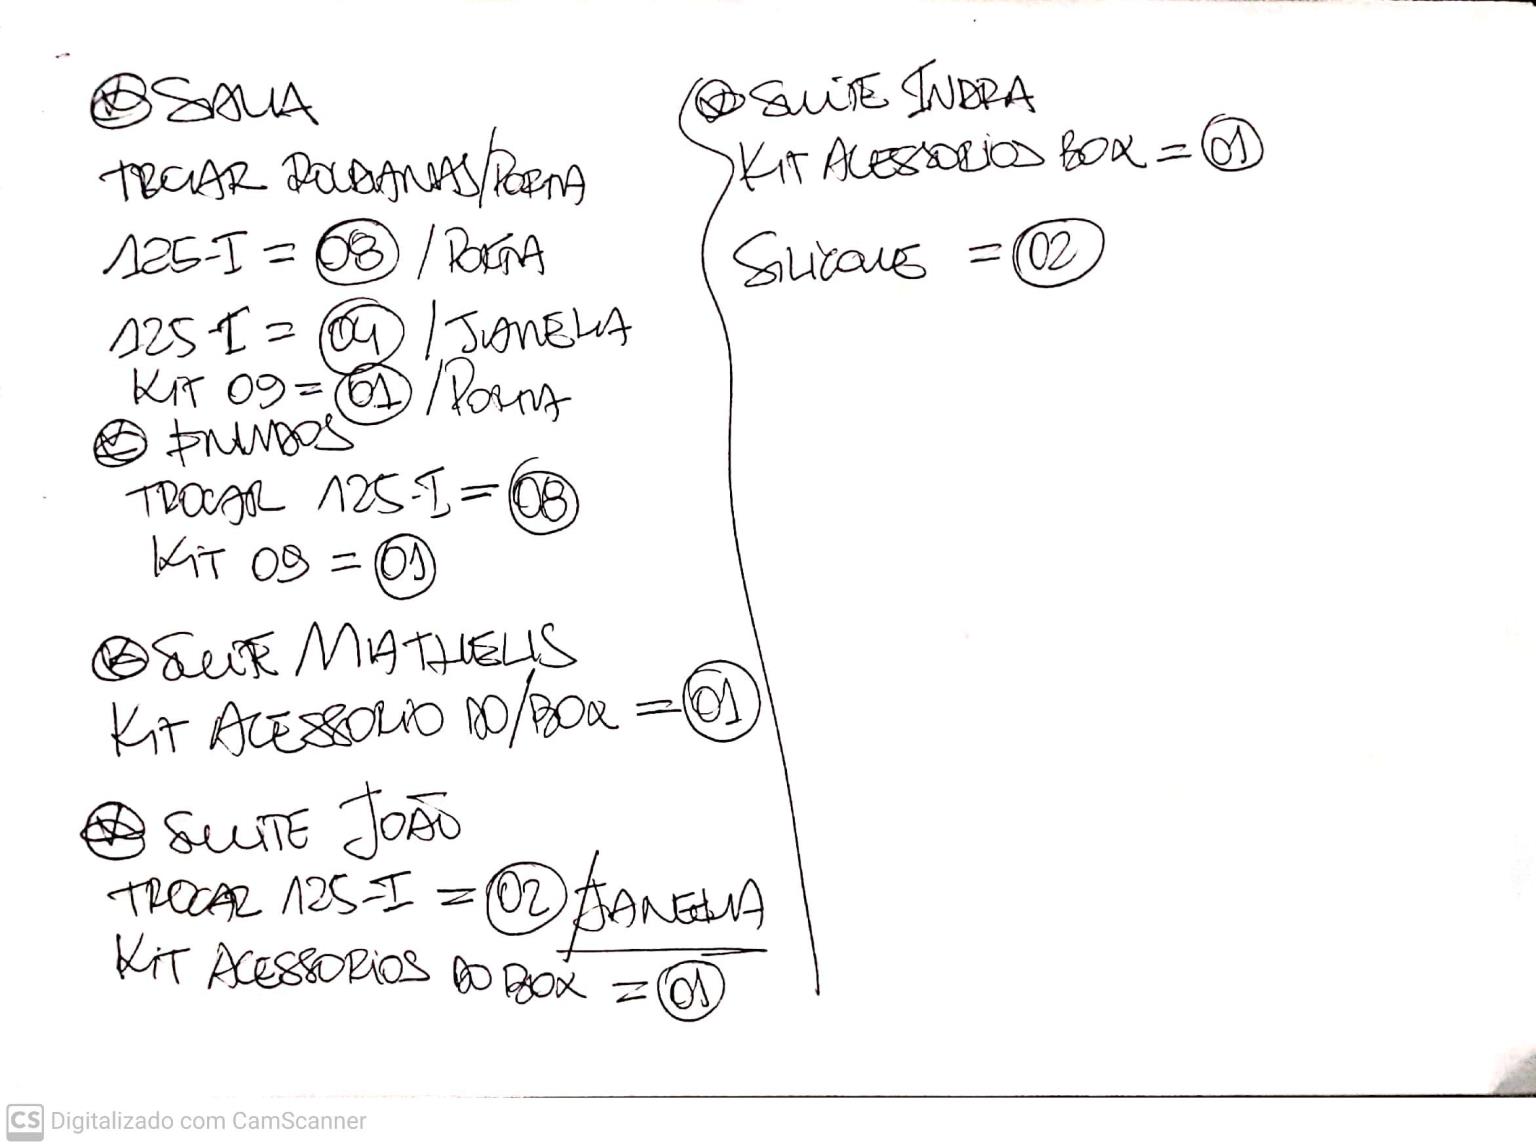 SALA
TROCAR ROLDANAS/PORTA
125-I = 08 / PORTA
125-I = 04 / JANELA
KIT 09 = 01 / PORTA
FUNDOS
TROCAR 125-I = 08
KIT 09 = 01
SUITE MATHEUS
KIT ACESSORIO DO/BOX = 01
SUITE JOÃO
TROCAR 125-I = 02 / JANELA
KIT ACESSORIOS DO BOX = 01
SUITE INDRA
KIT ACESSORIOS BOX = 01
SILICONE = 02
CS Digitalizado com CamScanner